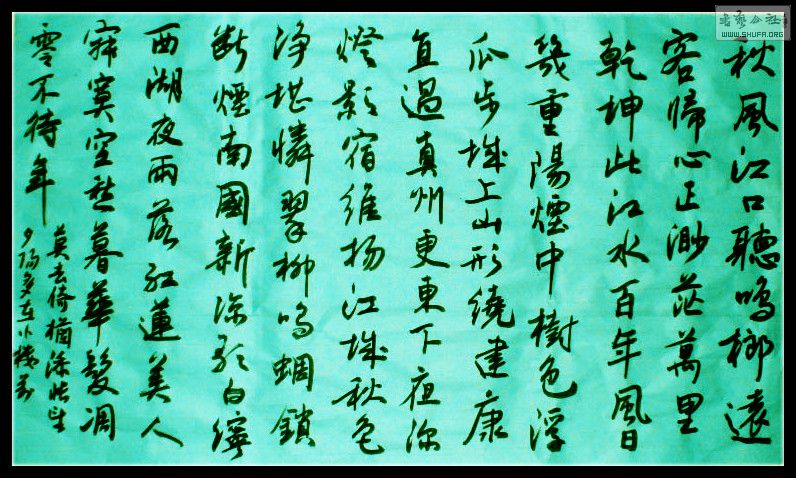 秋風江口聽鳴榔遠
客歸心正渺茫萬里
乾坤此江水百年風日
幾重陽煙中樹色浮
瓜步城上山形繞建康
直過真州更東下夜深
燈影宿維揚江城秋色
淨堪憐翠柳鳴蜩鎖
斷煙南國新涼歌白紵
西湖夜雨落紅蓮美人
寂寞空愁暮華髮凋
零不待年
莫去倚欄添悵望
夕陽多在小樓前
書藝公社
WWW.SHUFA.ORG